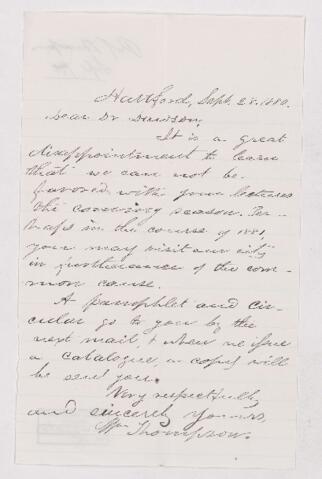 Hartford, Sept. 28. 1880.
Dear Dr Davidson,
It is a great
disappointment to learn
that we can not be
favored with your lectures
the coming season. Per-
haps in the course of 1881,
you may visit our city
in furtherance of the com-
mon cause.
A pamphlet and cir-
cular go to you by the
next mail, & when we issue
a catalogue, a copy will
be send you.
Very respectfully
and sincerely yours,
Wm Thompson.